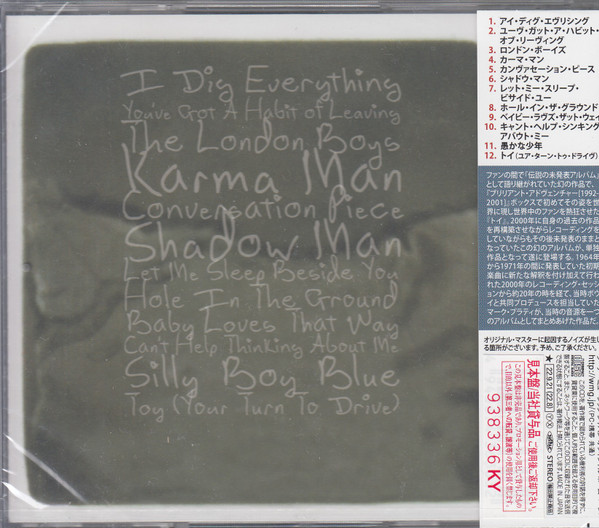 I Dig Everything
You've Got A Habit of Leaving
The London Boys
Karma Man
Conversation Piece
Shadow Man
Let Me Sleep Beside You
Hole In The Ground
Baby Loves That Way
Can't Help Thinking About Me
Silly Boy Blue
Toy (Your Turn To Drive)
1. アイ・ディグ・エヴリシング
2. ユーヴ・ガット・ア・ハビット・
オブ・リーヴィング
3. ロンドン・ボーイズ
4. カーマ・マン
5. カンヴァセーション・ピース
6. シャドウ・マン
7. レット・ミー・スリープ・
ビサイド・ユー
8. ホール・イン・ザ・グラウンド
9. ベイビー・ラヴズ・ザット・ウェイ
10. キャント・ヘルプ・シンキング
アバウト・ミー
11. 愚かな少年
12. トイ（ユア・ターン・トゥ・ドライヴ）
ファンの間で「伝説の未発表アルバム」
として語り継がれていた幻の作品で、
『ブリリアント・アドヴェンチャー[1992-
2001]』ボックスで初めてその姿を世
界に現し世界中のファンを熱狂させた
『トイ』。2000年に自身の過去の作品
を再構築させながらレコーディングを
していながらもその後未発表のままと
なっていたこの幻のアルバムが、単独
作品となって遂に登場する。1964年
から1971年の間に発表していた初期
楽曲に新たな解釈を付け加えて行わ
れた2000年のレコーディング・セッシ
ョンから約20年の時を経て、当時ボウ
イと共同プロデュースを担当していた
マーク・プラティが、当時の音源を一つ
のアルバムとしてまとめあげた作品だ。
オリジナル・マスターに起因するノイズが生じ
る箇所がございます。予め、ご了承ください。
http://wmg.jp (PC・携帯 共通)
MADE IN JAPAN
★ (22.9.21)(22.8)
STEREO
見本盤 当社貸与品 ご使用後ご返却下さい。
938336 KY